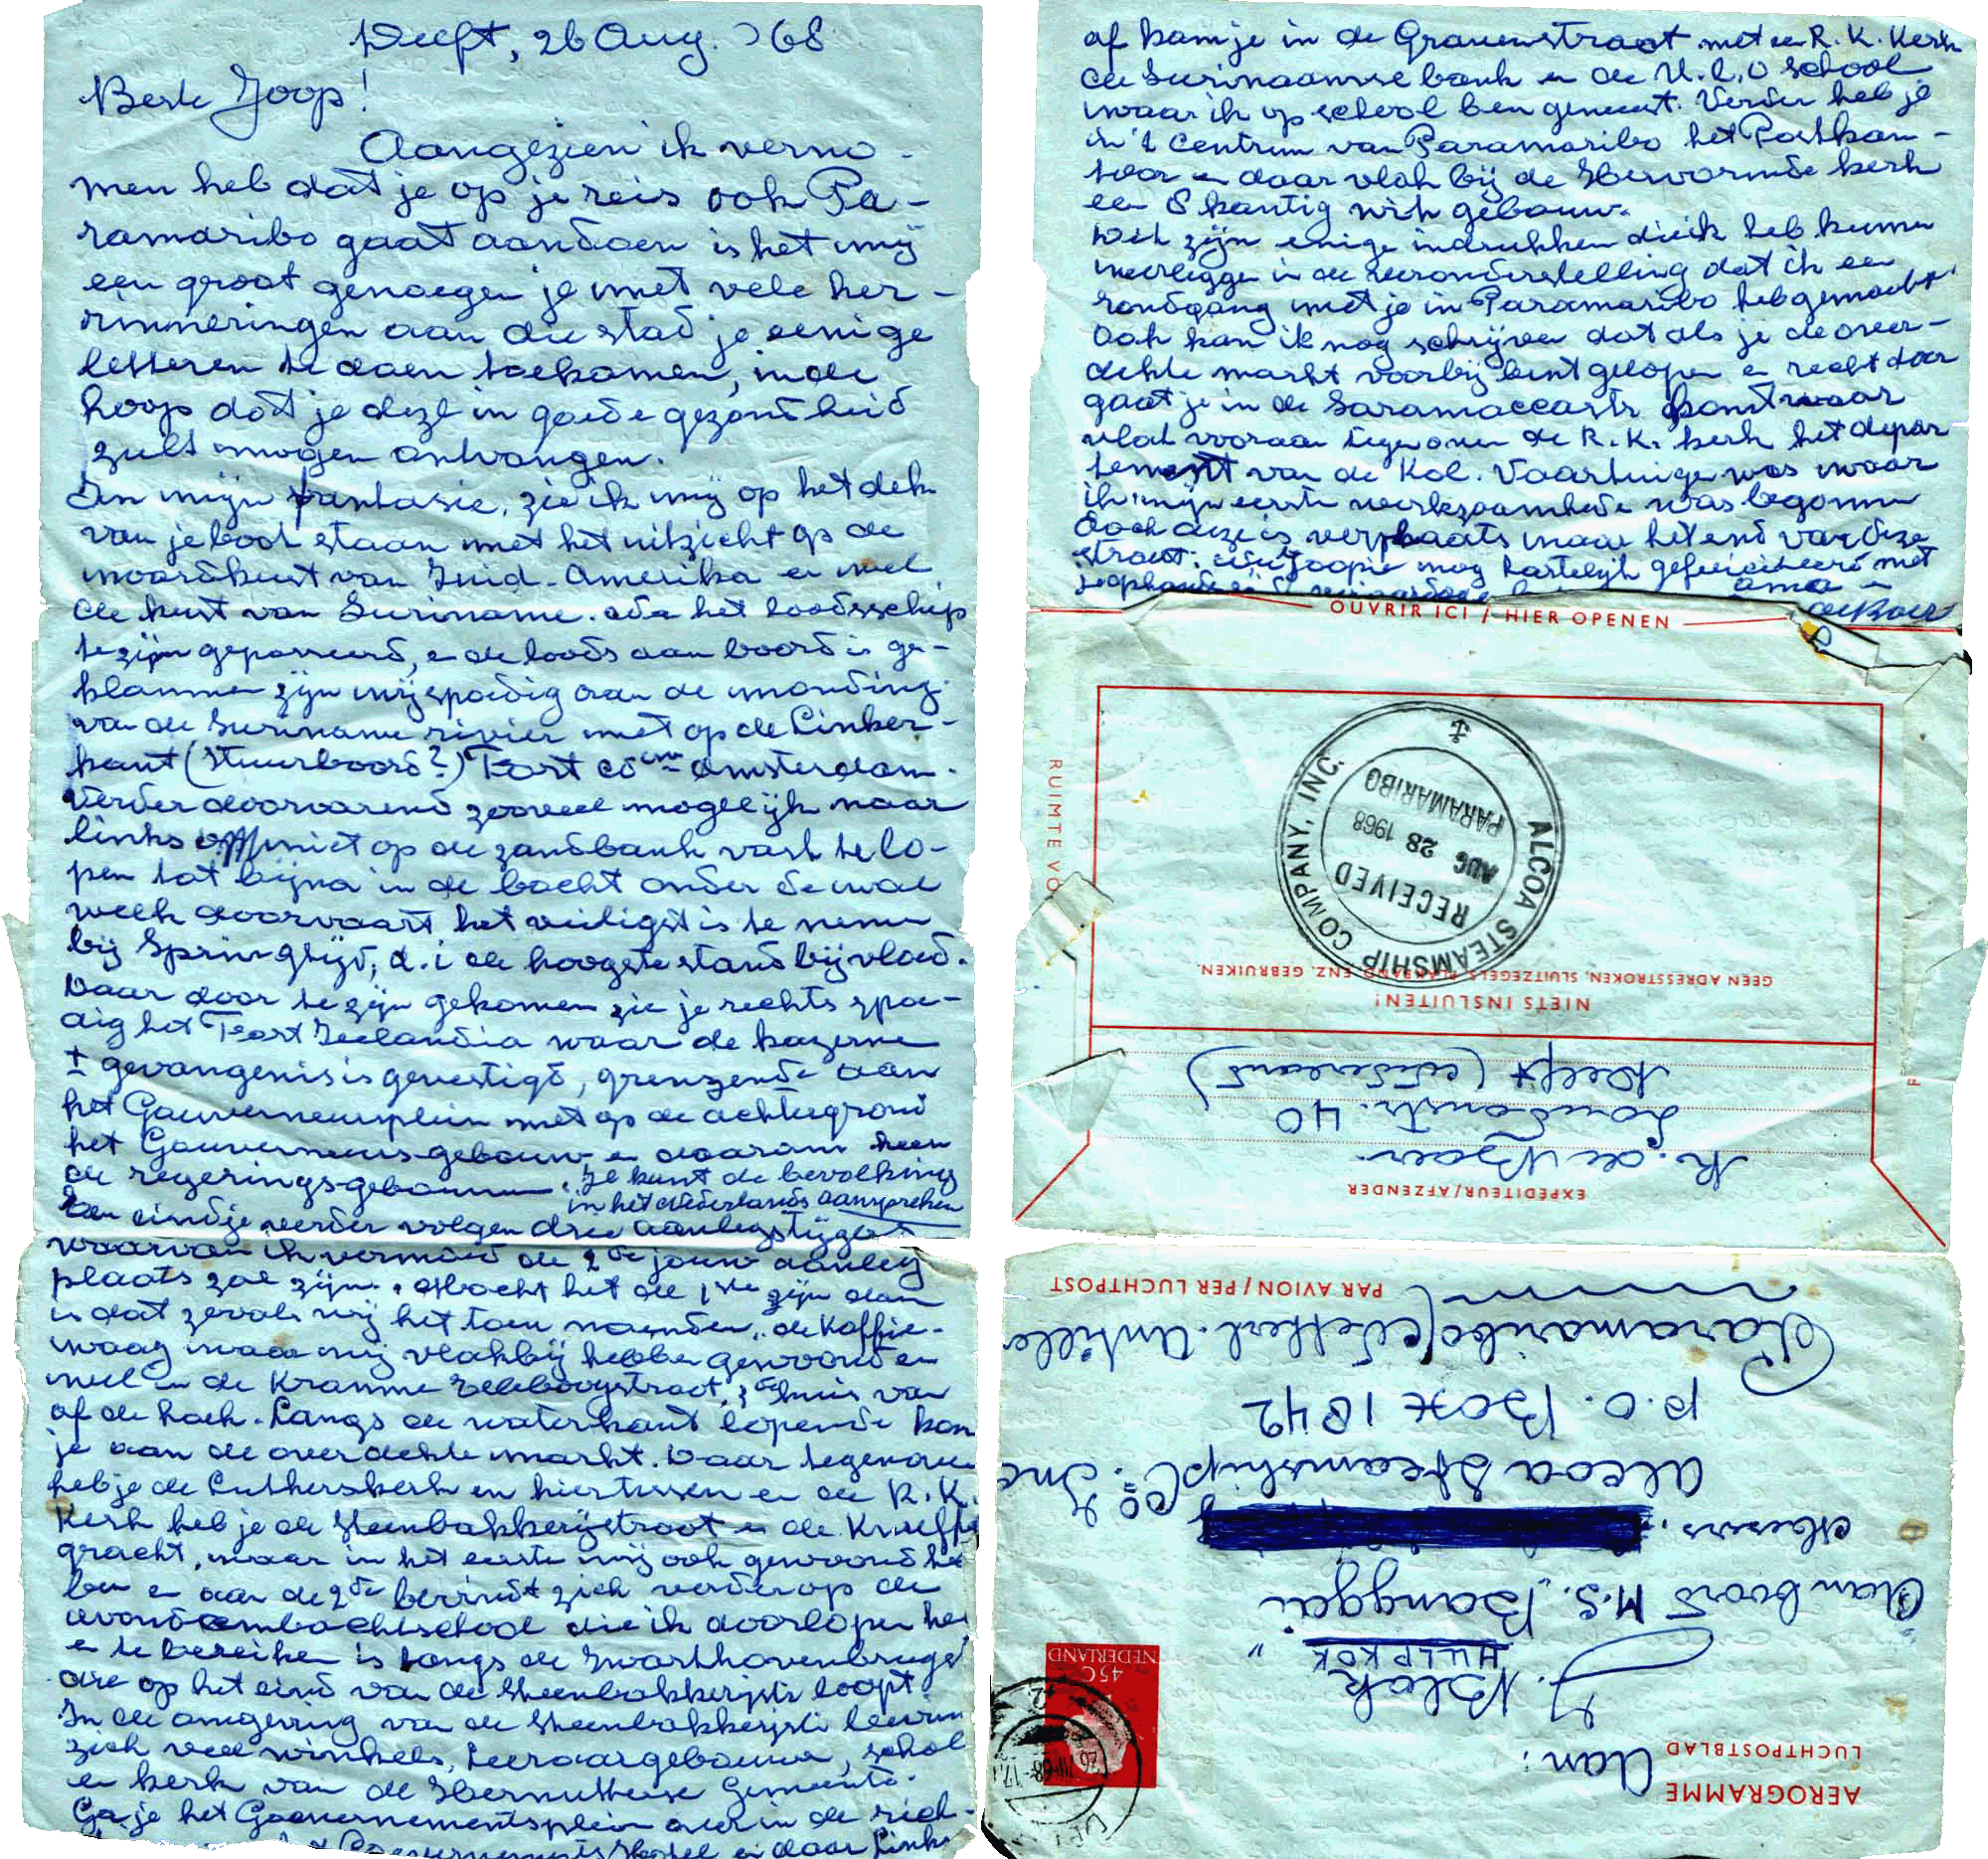 Delft, 26 Aug. '68
Beste Joop!
Aangezien ik verno-
men heb dat je op je reis ook Pa-
ramaribo gaat aandoen is het mij
een groot genoegen je met vele her-
inneringen aan die stad je eenige
letteren te doen toekomen, in de
hoop dat je deze in goede gezondheid
zult mogen ontvangen.
In mijn fantasie, zie ik mij op het dek
van je boot staan met het uitzicht op de
noordkust van Zuid-Amerika en wel
de kust van Suriname. Na het loodsschip
te zijn gepasseerd, en de loods aan boord is ge-
klommen zijn wij spoedig aan de monding
van de Suriname rivier met op de Linker-
kant (Stuurboord?) Fort Amsterdam.
Verder doorvarend zooveel mogelijk naar
links niet op de zandbank vast te lo-
pen tot bijna in de bocht onder de wal
welk doorvaart het veiligst is te nemen
bij Springtijd, d.i. de hoogste stand bij vloed.
Daar door te zijn gekomen zie je rechts spoe-
dig het Fort Zeelandia waar de kazerne
± gevangenis is gevestigd, grenzende aan
het Gouverneursplein met op de achtergrond
het Gouverneurs-gebouw en daarom heen
de regeringsgebouwen. Je kunt de bevolking
in het Nederlands aanspreken
Een eindje verder volgen drie aanlegsteigers
waarvan ik vermoed de 2de jouw aanleg
plaats zal zijn. Mocht het de 1ste zijn dan
is dat zoals wij het toen noemden, "de Koffie-
waag waar wij vlakbij hebben gewoond en
wel in de Kromme Elleboogstraat, 3de huis van
af de hoek. Langs de waterkant lopende kom
je aan de overdekte markt. Daar tegenover
heb je de Lutherskerk en hiertussen en de R.K.
Kerk heb je de Steenbakkerijstraat en de
gracht, waar in het eerste wij ook gewoond heb
ben en aan de 2de bevindt zich verderop de
avondambachtschool die ik doorlopen heb
en te bereiken is langs de Zwarthovenbrugst
die op het eind van de Steenbakkerijstr loopt.
In de omgeving van de Steenbakkerijstr
zich veel winkels, leeraargebouwen, school
en kerk van de Hernutherse Gemeente.
Ga je het Gouvernementsplein over in de rich-
Gouvernements Hotel en daar links
af kom je in de Gravenstraat met een R.K. Kerk
de Surinaamse bank en de U.L.O school
waar ik op school ben geweest. Verder heb je
in 't Centrum van Paramaribo het Postkan-
toor en daar vlak bij de Hervormde kerk
een 8 kantig wit gebouw.
Dit zijn enige indrukken die ik heb kunnen
neerleggen in de veronderstelling dat ik een
rondgang met je in Paramaribo heb gemaakt.
Ook kan ik nog schrijven dat als je de over-
dekte markt voorbij bent gelopen en recht door
gaat je in de Saramaccastr komt waar
vlak vooraan tegenover de R.K. kerk het depar
tement van de Kol. Vaartuigen was waar
ik mijn eerste werkzaamheden was begonnen
doch deze is verplaats naar het eind van deze
straat. Joopie nog hartelijk gefeliciteerd met
oma en
de Boer
OUVRIR ICI / HIER OPENEN
RUIMTE VO
ALCOA STEAMSHIP COMPANY, INC.
RECEIVED
AUG 28 1968
PARAMARIBO
GEEN ADRESSTROKEN, SLUITZEGELS, PLAKBAND ENZ. GEBRUIKEN.
NIETS INSLUITEN!
EXPÉDITEUR/AFZENDER
R. de Boer
Loudonstr. 40
Delft (Nederland)
AEROGRAMME
LUCHTPOSTBLAD
Aan:
J. Blok
HULPKOK
Aan boord M.S. "Banggai"
Messrs.
Alcoa Steamship Co Inc
P.O. Box 1842
Paramaribo (Nederl. Antillen
PAR AVION/PER LUCHTPOST
45 C
NEDERLAND